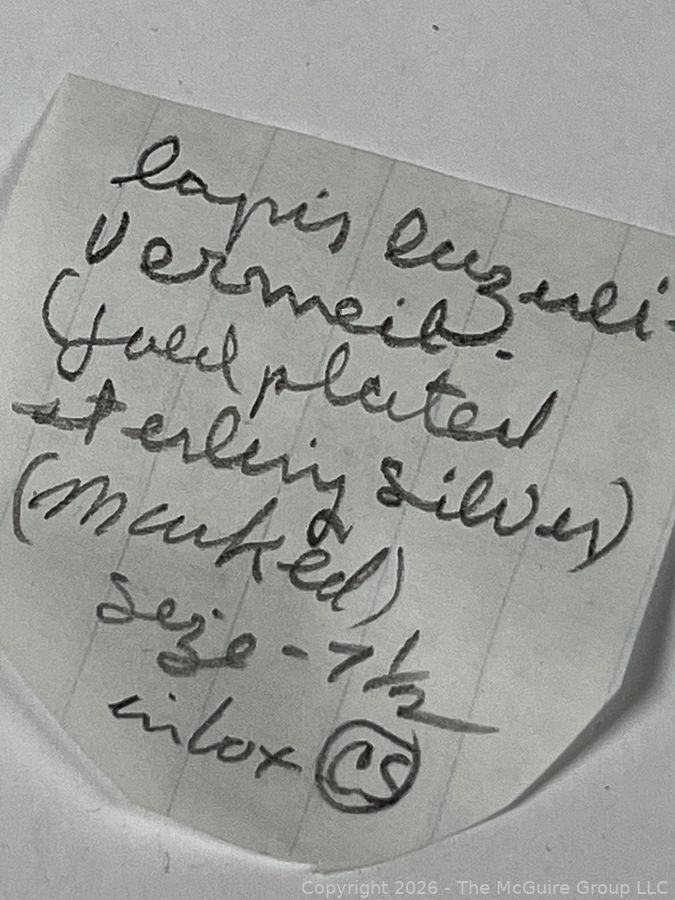 lapis luzuli -
vermeil.
(gold plated
sterling silver)
(marked)
size - 7 1/2
in box CS
Copyright 2026 - The McGuire Group LLC